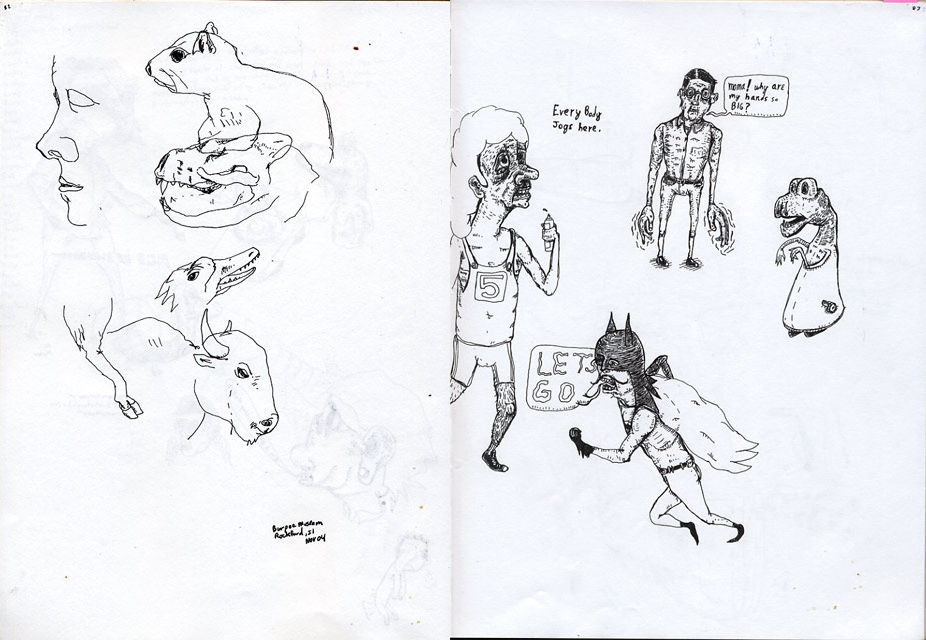 Burpee Museum
Rockford, Il
Nov 04
Every Body
Jogs here.
moma! why are
my hands so
BIG?
5
LETS
GO